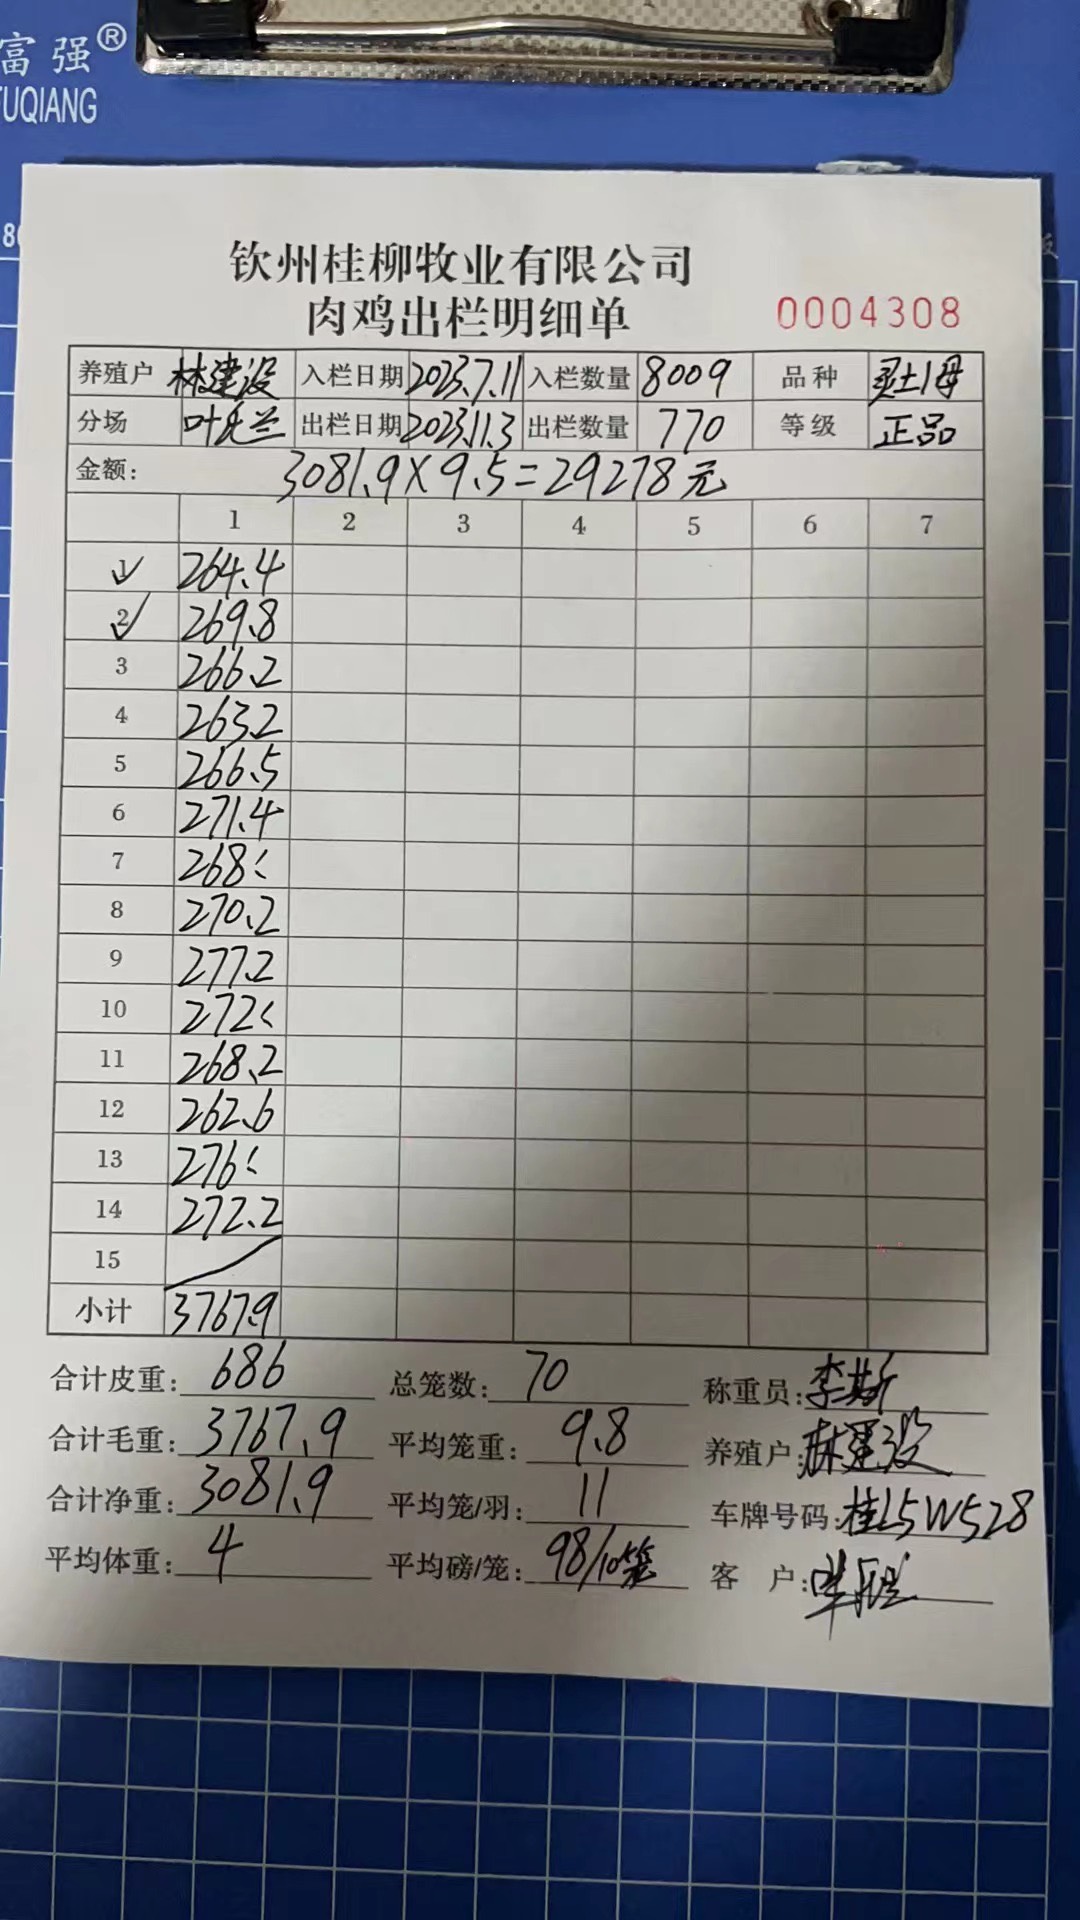 富强®
FUQIANG
钦州桂柳牧业有限公司
肉鸡出栏明细单 0004308
养殖户 林建设 入栏日期 2023.7.11 入栏数量 8009 品种 灵土1母
分场 叶氏兰 出栏日期 2023.11.3 出栏数量 770 等级 正品
金额: 3081.9×9.5=29278元
1 2 3 4 5 6 7
1 264.4
2 269.8
3 266.2
4 263.2
5 266.5
6 271.4
7 268
8 270.2
9 277.2
10 272
11 268.2
12 262.6
13 276
14 272.2
15
小计 3767.9
合计皮重: 686 总笼数: 70 称重员: 李斯
合计毛重: 3767.9 平均笼重: 9.8 养殖户: 林建设
合计净重: 3081.9 平均笼/羽: 11 车牌号码: 桂L5W528
平均体重: 4 平均磅/笼: 98/10笼 客户: